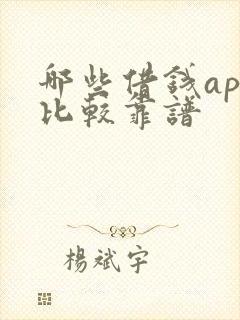 哪些借錢ap
比較靠譜
楊斌宇